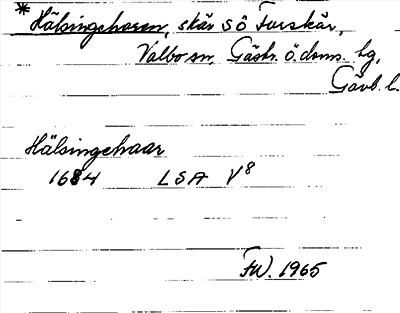 * Hälsingeharen, skär SÖ Furskär,
Valbo sn, Gästr. ö. doms. hg,
Gävb. l.
Hälsingehaar
1684 LSA V8
FW. 1965